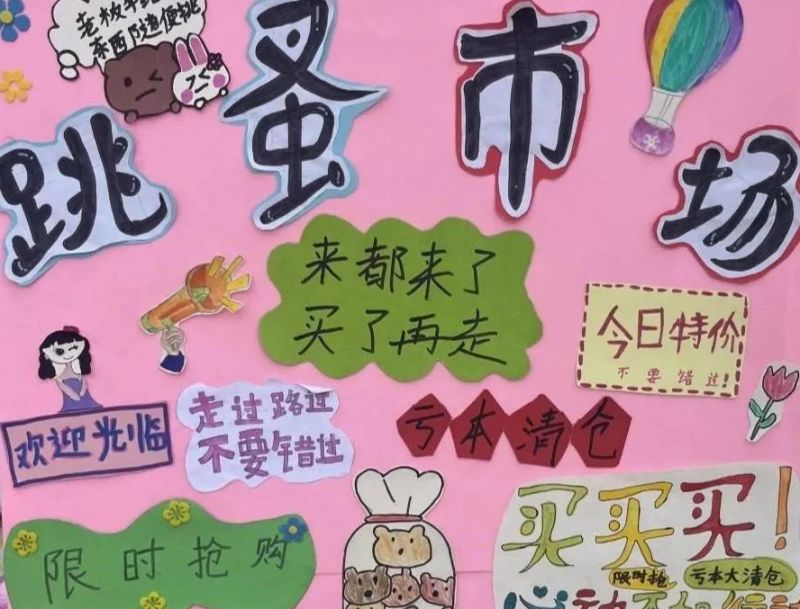 老板
东西随便挑
跳蚤市场
来都来了
买了再走
今日特价
不要错过!
欢迎光临
走过路过
不要错过
亏本清仓
限时抢购
买买买!
限时抢
亏本大清仓
心动不如行动